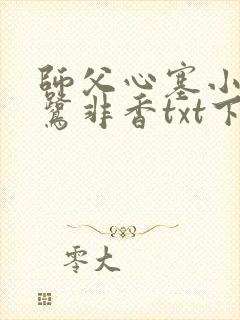 師父心塞小
鷺非香txt下
零大